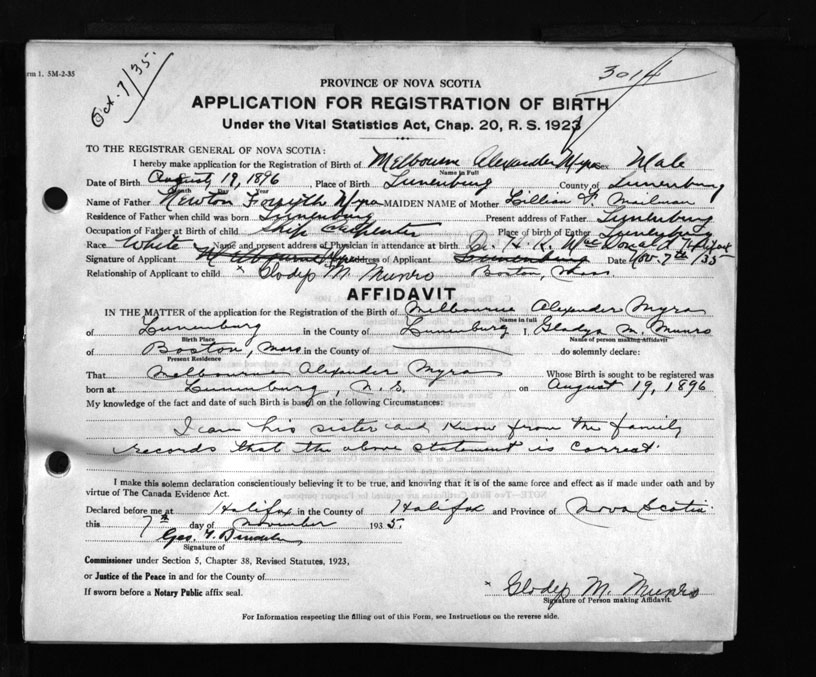 rm 1. 5M-2-35
Oct. 7/35.
3014
PROVINCE OF NOVA SCOTIA
APPLICATION FOR REGISTRATION OF BIRTH
Under the Vital Statistics Act, Chap. 20, R. S. 1923
TO THE REGISTRAR GENERAL OF NOVA SCOTIA:
I hereby make application for the Registration of Birth of Melbourne Alexander Myra Sex Male
Name in Full
Date of Birth August 19, 1896 Place of Birth Lunenburg County of Lunenburg
Month Day Year
Name of Father Newton Forsythe Myra MAIDEN NAME of Mother Lillian F. Mailman
Residence of Father when child was born Lunenburg Present address of Father Lunenburg
Occupation of Father at Birth of child Ship Carpenter Place of birth of Father Lunenburg
Race White Name and present address of Physician in attendance at birth Dr. H. K. MacDonald Halifax
Signature of Applicant Melbourne Myra Address of Applicant Lunenburg Date Nov. 7th/35
Relationship of Applicant to child x Gladys M. Munro Boston, Mass.
AFFIDAVIT
IN THE MATTER of the application for the Registration of the Birth of Melbourne Alexander Myra
Name in full
of Lunenburg in the County of Lunenburg I, Gladys M. Munro
Birth Place Name of person making Affidavit
of Boston, Mass. in the County of do solemnly declare:
Present Residence
That Melbourne Alexander Myra Whose Birth is sought to be registered was
born at Lunenburg, N.S. on August 19, 1896
My knowledge of the fact and date of such Birth is based on the following Circumstances:
I am his sister and know from the family
records that the above statement is correct.
I make this solemn declaration conscientiously believing it to be true, and knowing that it is of the same force and effect as if made under oath and by
virtue of The Canada Evidence Act.
Declared before me at Halifax in the County of Halifax and Province of Nova Scotia
this 7th day of November 1935.
Geo. Y.
Signature of
Commissioner under Section 5, Chapter 38, Revised Statutes, 1923,
or Justice of the Peace in and for the County of
If sworn before a Notary Public affix seal.
x Gladys M. Munro
Signature of Person making Affidavit.
For Information respecting the filling out of this Form, see Instructions on the reverse side.